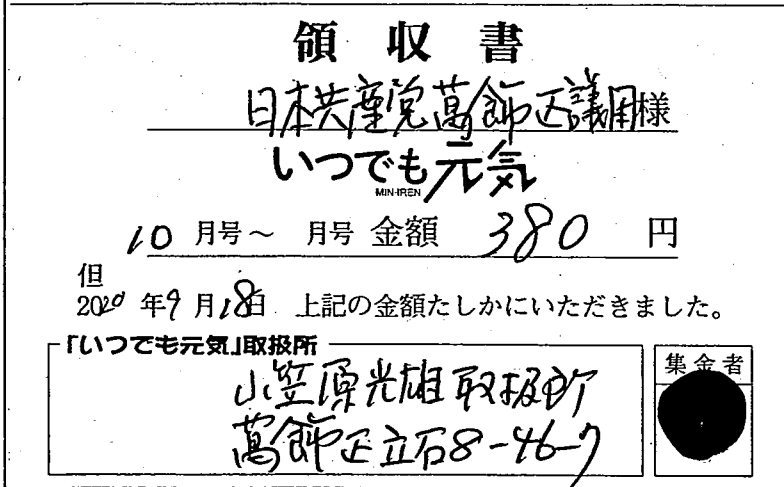 領収書
日本共産党葛飾区議団様
いつでも元気
MIN-IREN
10月号～ 月号 金額 380 円
但
2020年9月18日 上記の金額たしかにいただきました。
「いつでも元気」取扱所
小笠原光雄取扱所
葛飾区立石8-46-7
集金者